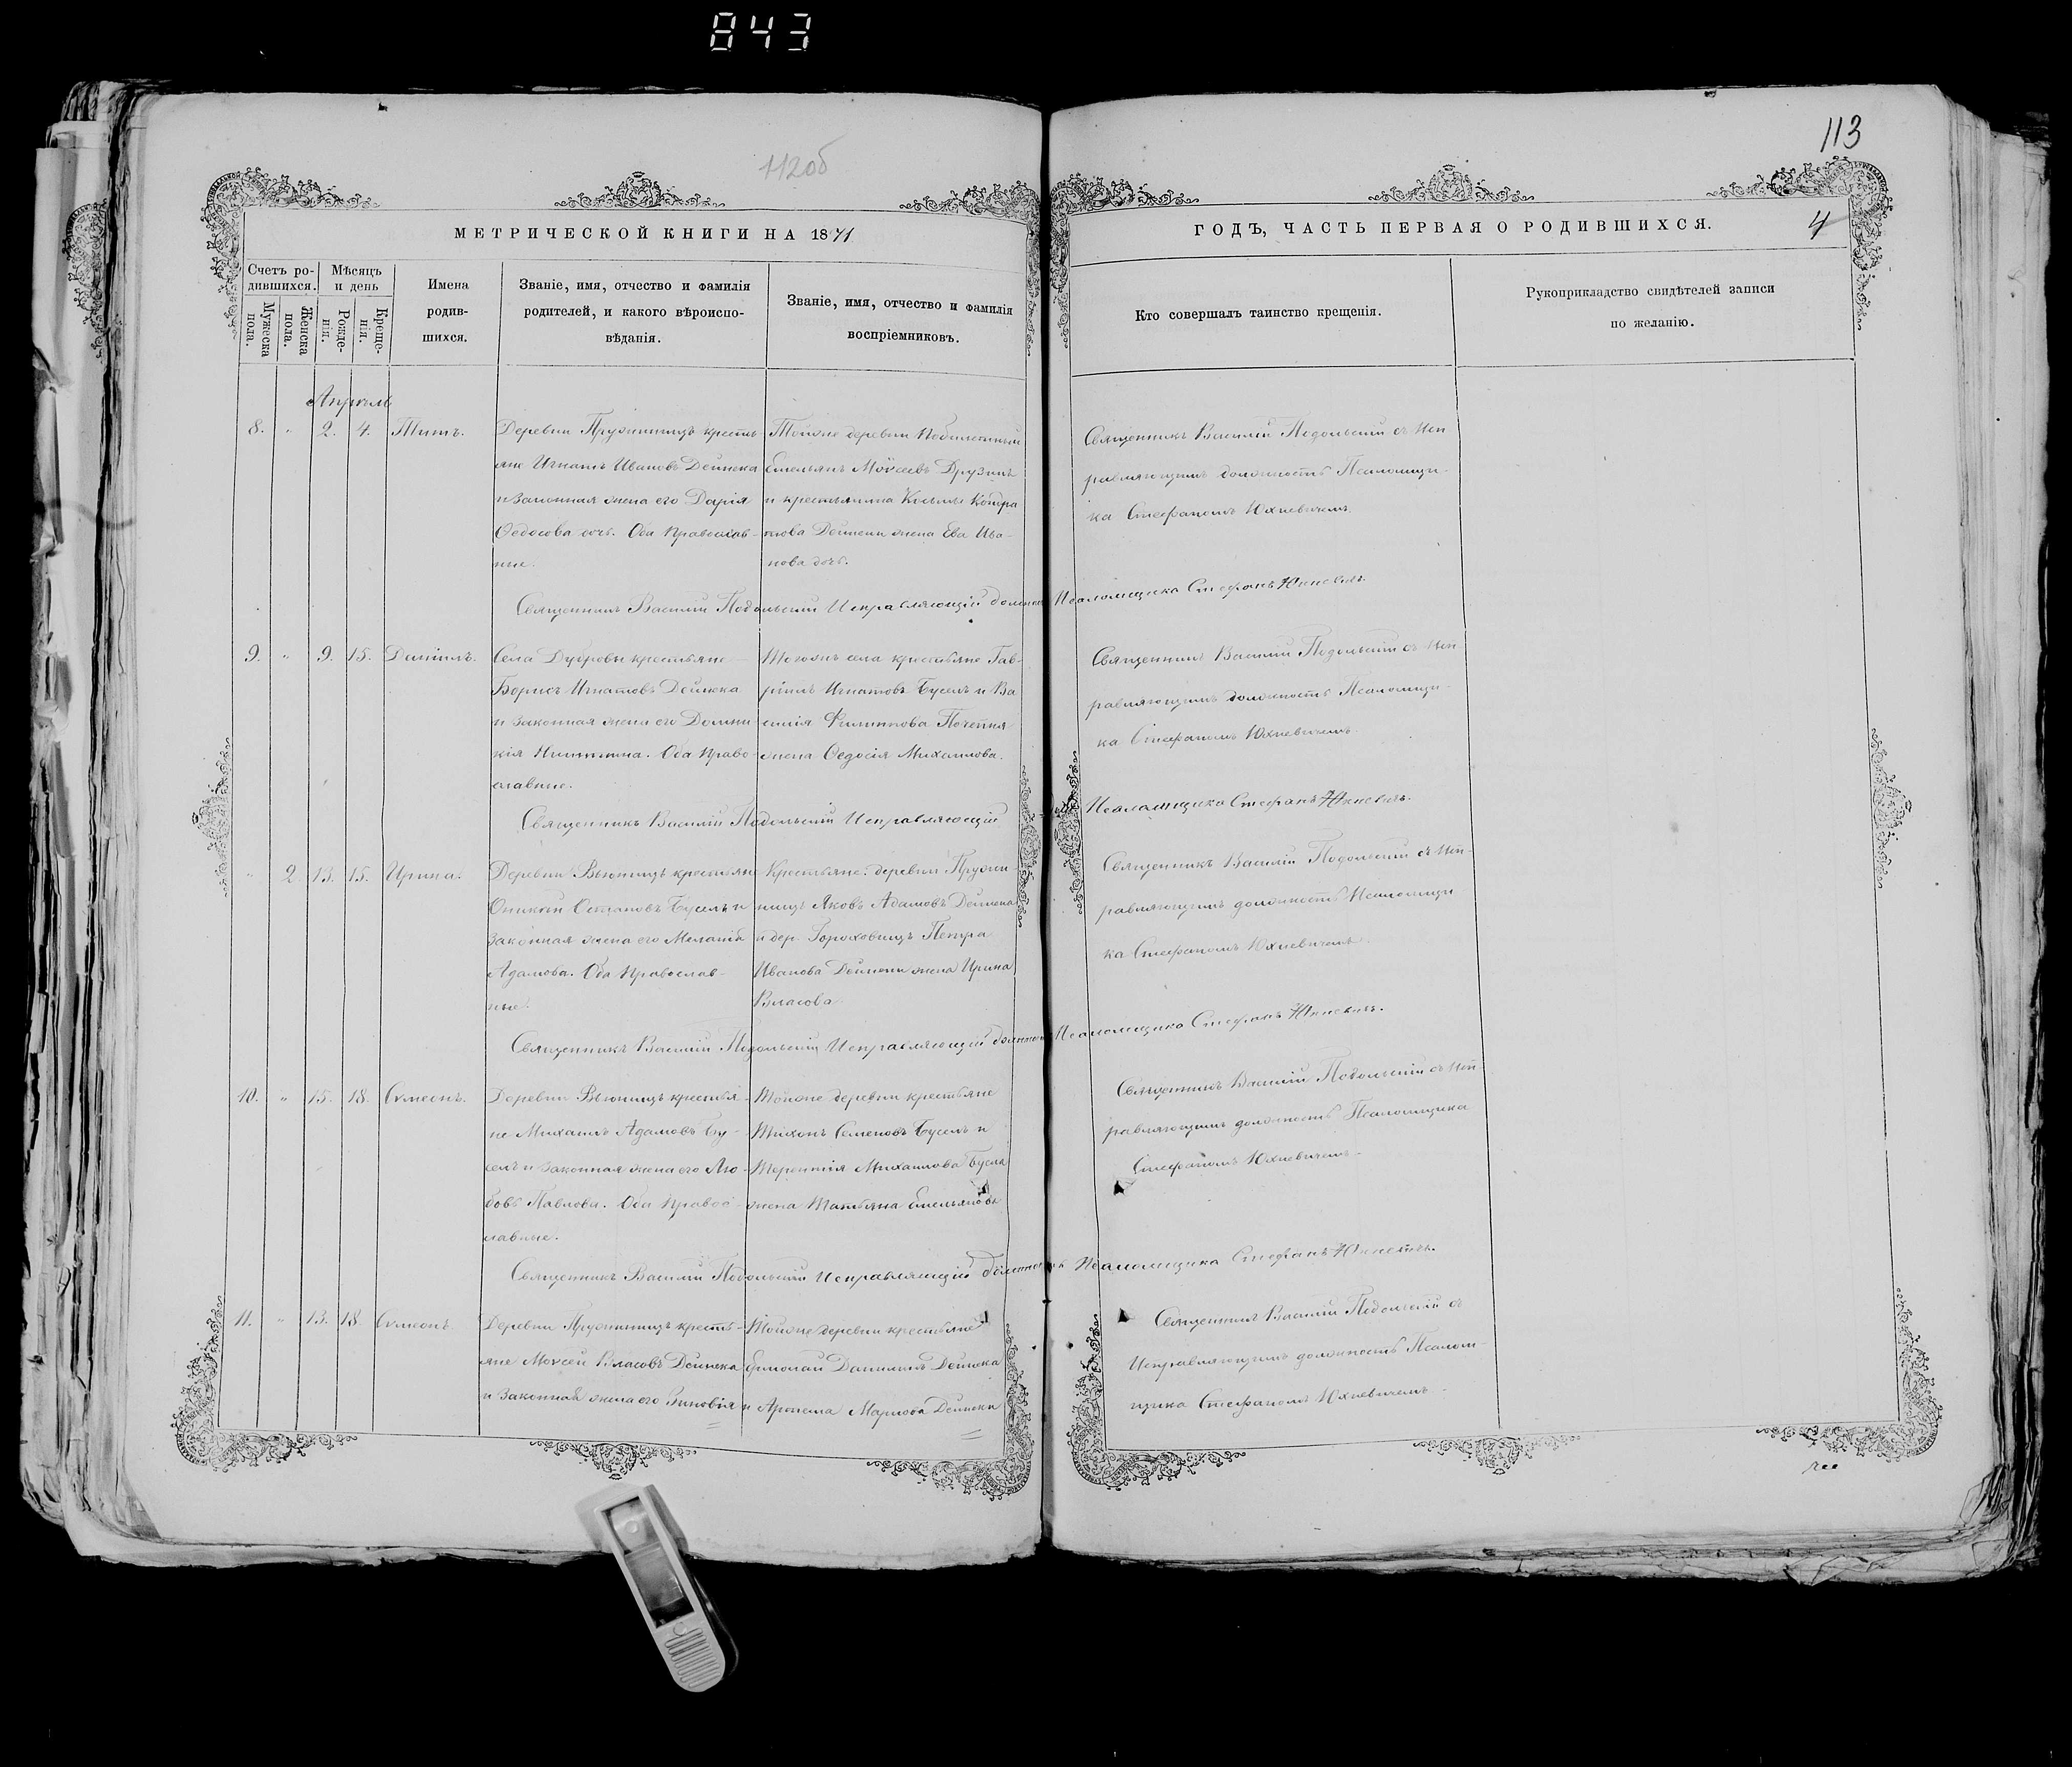 843
112об
113
МЕТРИЧЕСКОЙ КНИГИ НА 1871
ГОДЪ, ЧАСТЬ ПЕРВАЯ О РОДИВШИХСЯ.
4
Счетъ ро-
дившихся.
Мужеска
пола.
Женска
пола.
Мѣсяцъ
и день
Рожде-
нія.
Креще-
нія.
Имена
родив-
шихся.
Званіе, имя, отчество и фамилія
родителей, и какого вѣроиспо-
вѣданія.
Званіе, имя, отчество и фамилія
воспріемниковъ.
Кто совершалъ таинство крещенія.
Рукоприкладство свидѣтелей записи
по желанію.
Апрѣль
8. " 2. 4. Титъ.
Деревни Пружинищъ кресть-
яне Игнатъ Ивановъ Дейнека
и законная жена его Дарія
Ѳедосова дочь. Оба Православ-
ные.
Тойже деревни
Емельянъ Моѵсеевъ
и крестьянина Косьмы Кондра
това Дейнеки жена Ева Ива-
нова дочь.
Священникъ Василій Подольскій съ Исп
равляющимъ должность Псаломщи-
ка Стефаномъ Юхневичемъ.
Священникъ Василій Подольскій Исправляющій должность Псаломщика Стефанъ Юхневичъ.
9. " 9. 15. Даніилъ.
Села Дубровы крестьяне
Борисъ Игнатовъ Дейнека
и законная жена его Домни-
кія Никитина. Оба Право-
славные.
Тогоже села крестьяне Гав-
ріилъ Игнатовъ Буселъ и Ва
силія Филиппова
жена Ѳедосія Михаилова.
Священникъ Василій Подольскій съ Исп
равляющимъ должность Псаломщи-
ка Стефаномъ Юхневичемъ.
Священникъ Василій Подольскій Исправляющій
Псаломщика Стефанъ Юхневичъ.
" 2 13. 15. Ирина.
Деревни Вьюнищъ крестьяне
Остаповъ Буселъ и
законная жена его Меланія
Адамова. Оба Православ-
ные.
Крестьяне: деревни Пружи
нищъ Яковъ Адамовъ Дейнека
и дер. Гороховищъ Петра
Иванова Дейнеки жена Ирина
Власова
Священникъ Василій Подольскій съ Исп-
равляющимъ должность Псаломщи
ка Стефаномъ Юхневичемъ.
Священникъ Василій Подольскій Исправляющій должность Псаломщика Стефанъ Юхневичъ.
10. " 15. 18. Сѵмеонъ.
Деревни Вьюнищъ крестья-
не Михаилъ Адамовъ Бу-
селъ и законная жена его Лю-
бовь Павлова. Оба Правос-
лавные.
Тойже деревни крестьяне
Тихонъ Семеновъ Буселъ и
Терентія Михаилова Бусла
жена Татьяна Емельянова
Священникъ Василій Подольскій съ Исп
равляющимъ должность Псаломщика
Стефаномъ Юхневичемъ.
Священникъ Василій Подольскій Исправляющій должность Псаломщика Стефанъ Юхневичъ.
11. " 13. 18. Сѵмеонъ.
Деревни Пружинищъ кресть-
яне Моѵсей Власовъ Дейнека
и законная жена его Зиновія
Тойже деревни крестьяне
Ермолай Даниловъ Дейнека
и Маркова Дейнеки
Священникъ Василій Подольскій съ
Исправляющимъ должность Псалом-
щика Стефаномъ Юхневичемъ.